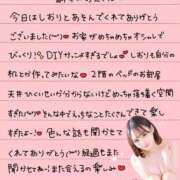 今日はしおりとあそんでくれてありがとう
ございました(〃) お家がめちゃめちゃオシャレで
びっくり！DIYかっこよすぎるでしょ しおりも自分の
机とか作ってみたいな 2階のベッドのお部屋
天井ひくいせいか分からないけどめっちゃ落ち着く空間
すぎた(〃) そんな中でいちゃいちゃたくさんできて楽し
すぎたよ〜！ 色んな話も聞かせて
くれてありがとう(〃) 経過もまた
聞かせてね また会えるの楽しみ